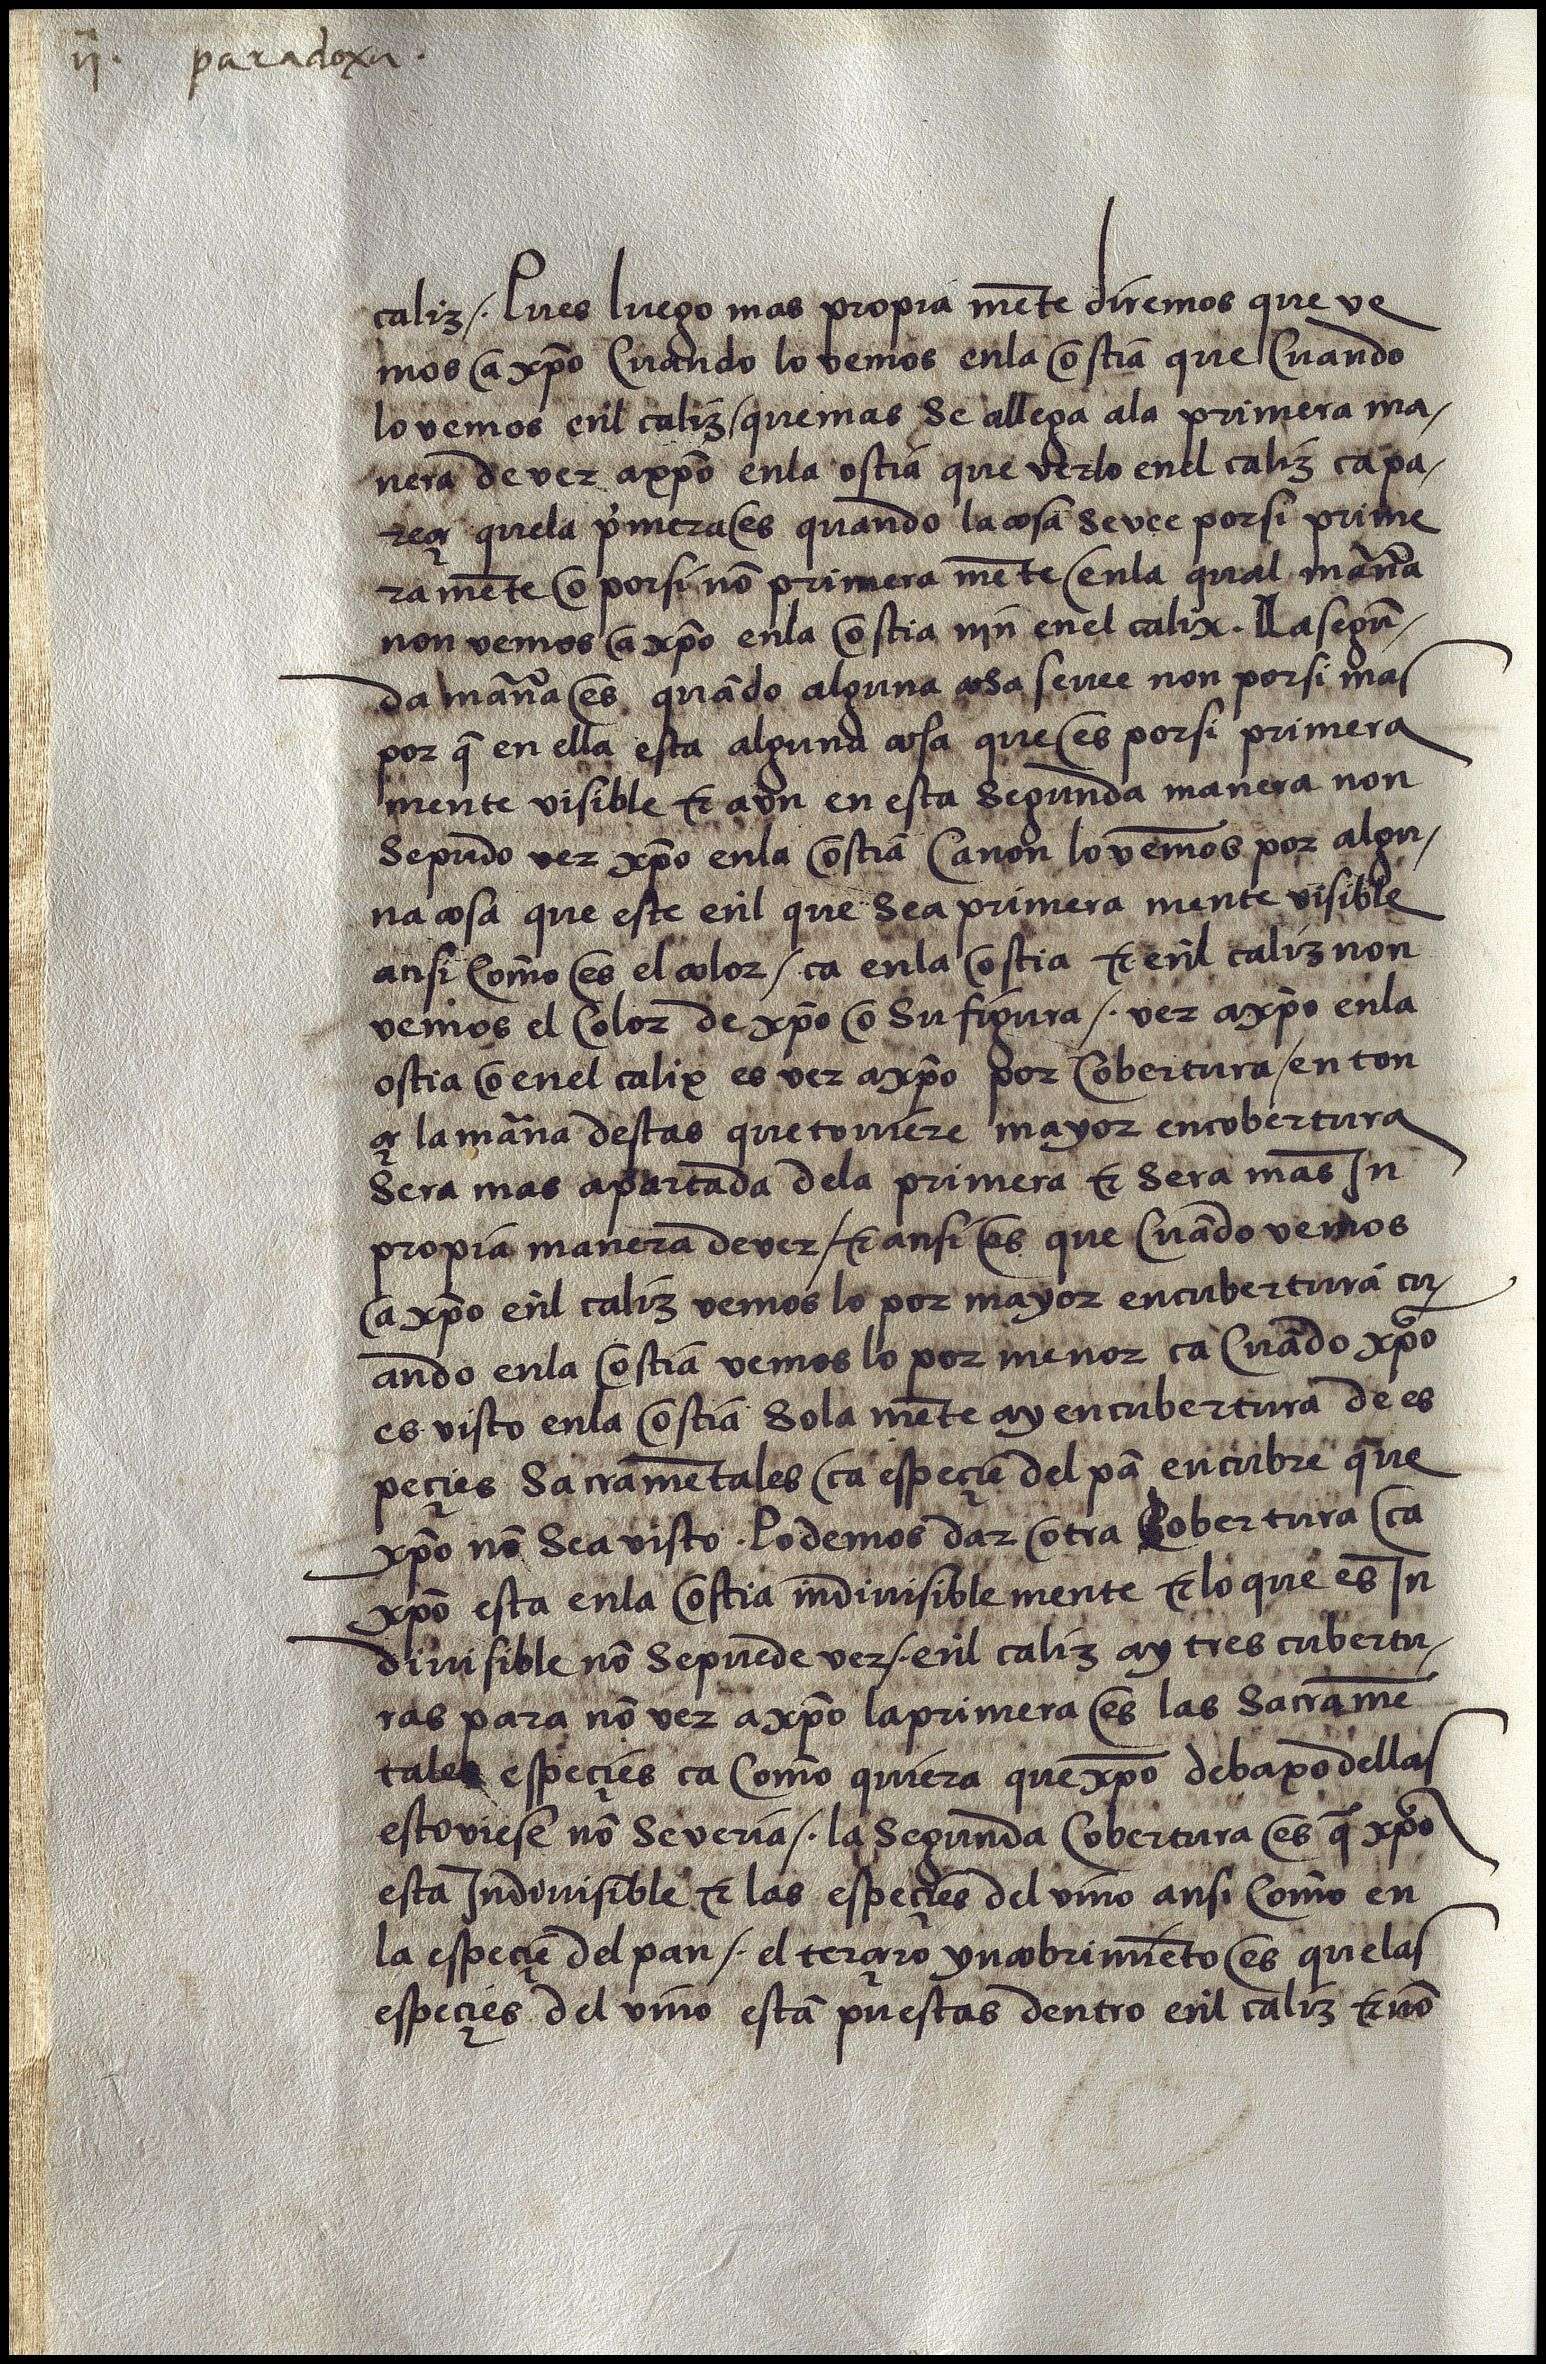 ij. paradoxa.
caliz /. Pues luego mas propia mẽte diremos que ve
mos a xp̃o Cuando lo vemos enla ostia que Cuando
lo vemos enl caliz / que mas Se allega ala primera ma/
nera de ver a xp̃o enla ostia que verlo enel caliz ca pa/
reçe quela p'mera es quando la cosa Se vee por si prime
ra mẽte o por si nõ primera mẽte enla qual mãn̄a
non vemos a xp̃o enla ostia nin enel calix. La segũ/
da mãn̄a es quãdo alguna cosa se vee non por si mas
por q̃ en ella esta alguna cosa que es por si primera
mente visible & avn en esta Segunda manera non
Se pudo ver xp̃o enla ostia Ca non lo vemos por algu/
na cosa que este enl que Sea primera mente visible
ansi Como es el color /. ca enla ostia & enl caliz non
vemos el Color de xp̃o o Su figura /. ver a xp̃o enla
ostia o enel calix es ver a xp̃o por Cobertura / en ton
çe la mãn̄a destas que toviere mayor encobertura
Sera mas apartada dela primera & Sera mas In
propia manera de ver / & ansi es que Cuãdo vemos
a xp̃o enl caliz vemos lo por mayor encubertura cu/
ando enla ostia vemos lo por menor ca Cuãdo xp̃o
es visto enla ostia Sola mẽte ay encubertura de es
peçies Sacramẽtales ca espeçie del pã encubre que
xp̃o nõ Sea visto. Podemos dar otra Cobertura ca
xp̃o esta enla ostia indiuisible mente & lo que es In
diuisible nõ Se puede ver /. enl caliz ay tres cubertu/
ras para nõ ver a xp̃o la primera es las Sacramẽ
tales espeçies ca Como quiera que xp̃o debaxo dellas
estoviese nõ Se veria /. la Segunda Cobertura es q̃ xp̃o
esta Indiuisible & las espeçies del vino ansi Como en
la espeçie del pan /. el terçero yncobrimiẽto es que las
espeçies del vino estã puestas dentro enl caliz & nõ